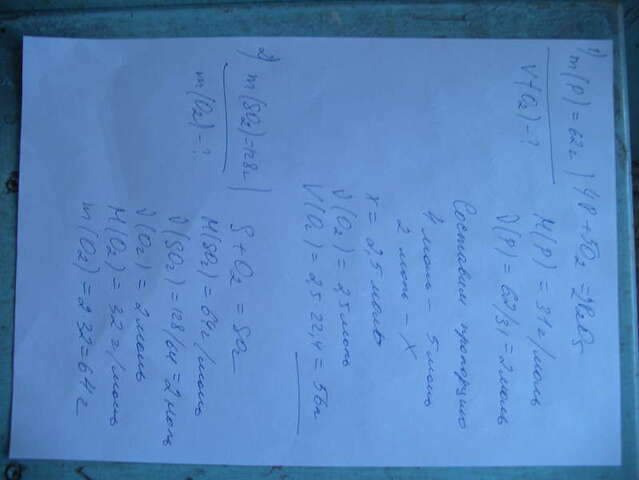 1) m(P) = 62г
V(O₂) - ?
4P + 5O₂ = 2P₂O₅
M(P) = 31г/моль
ν(P) = 62/31 = 2 моль
Составим пропорцию
4 моль - 5 моль
2 моль - X
X = 2,5 моль
ν(O₂) = 2,5 моль
V(O₂) = 2,5·22,4 = 56л
2) m(SO₂) = 128г
m(O₂) - ?
S + O₂ = SO₂
M(SO₂) = 64г/моль
ν(SO₂) = 128/64 = 2 моль
ν(O₂) = 2 моль
M(O₂) = 32 г/моль
m(O₂) = 2·32 = 64г